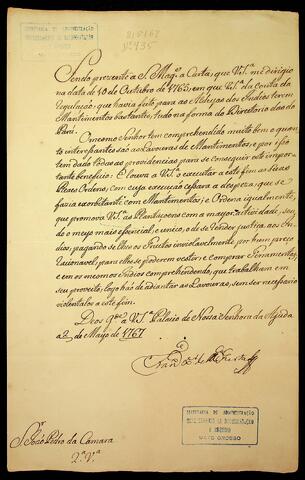 SECRETARIA DE ADMINISTRAÇÃO
Nº 435
Sendo presente a S. Mag.e a Carta, que V.S.a me dirigio
na data de 10 de Outubro de 1765, em que V.S.a dá conta da
regulação, que havia feito para as Aldeyas dos Indios terem
Mantimentos bastantes, tudo na forma do Directorio das do
Pará.
O mesmo Senhor tem comprehendido muito bem o quan
to interessantes são as Lavouras de Mantimentos, e por isso
tem dado todas as providencias para se conseguir este impor-
tante beneficio: E louva a V.S.a executar a este fim as Suas
Reaes Ordens, com cuja execução cessará a despeza, que se
fazia exorbitante com Mantimentos; e Ordena igualmente,
que promova V.S.a as Plantaçoens com a mayor actividade, sen-
do o meyo mais essencial, e unico, o de se render justiça aos In-
dios, pagando se lhes os Fructos inviolavelmente por hum preço
racionavel; para elles se poderem vestir, e comprar Ferramentas,
e em os mesmos Indios comprehendendo, que trabalham em
seu proveito, logo hão de adiantar as Lavouras, sem ser necessario
violentalos a este fim.
Deos g.de a V.S.a Palacio de Nossa Senhora da Ajuda
a 2 de Mayo de 1767.
SECRETARIA DE ADMINISTRAÇÃO
MATO GROSSO
S.r João Pedro da Camara